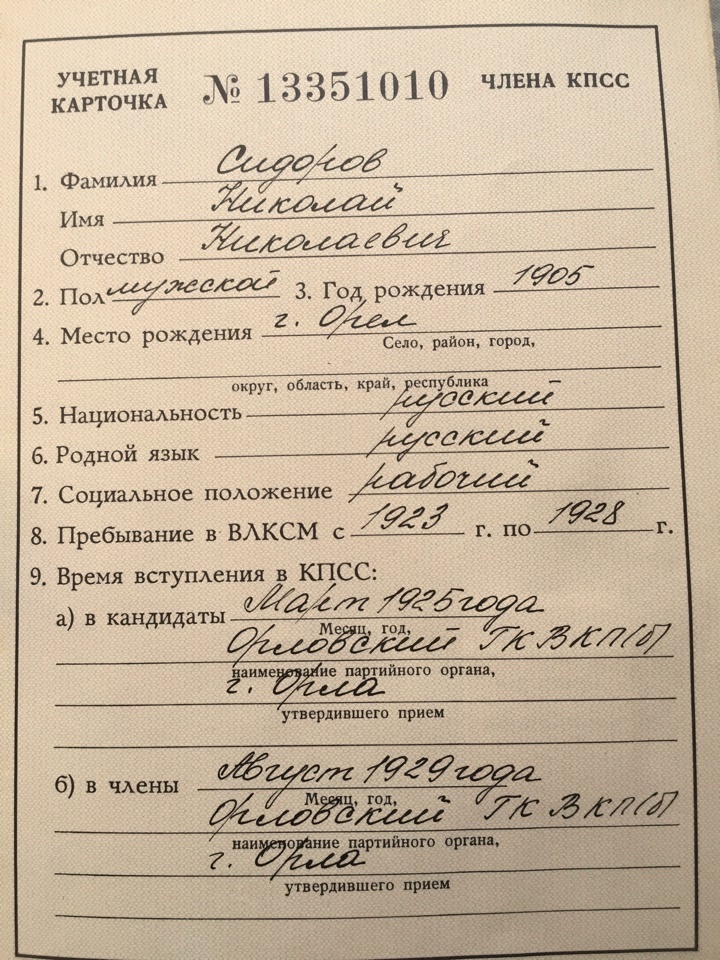 УЧЕТНАЯ КАРТОЧКА № 13351010 ЧЛЕНА КПСС
1. Фамилия Сидоров
Имя Николай
Отчество Николаевич
2. Пол мужской 3. Год рождения 1905
4. Место рождения г. Орел
Село, район, город,
округ, область, край, республика
5. Национальность русский
6. Родной язык русский
7. Социальное положение рабочий
8. Пребывание в ВЛКСМ с 1923 г. по 1928 г.
9. Время вступления в КПСС:
а) в кандидаты Март 1925 года
Месяц, год,
Орловский ГК ВКП(б)
наименование партийного органа,
г. Орла
утвердившего прием
б) в члены Август 1929 года
Месяц, год,
Орловский ГК ВКП(б)
наименование партийного органа,
г. Орла
утвердившего прием